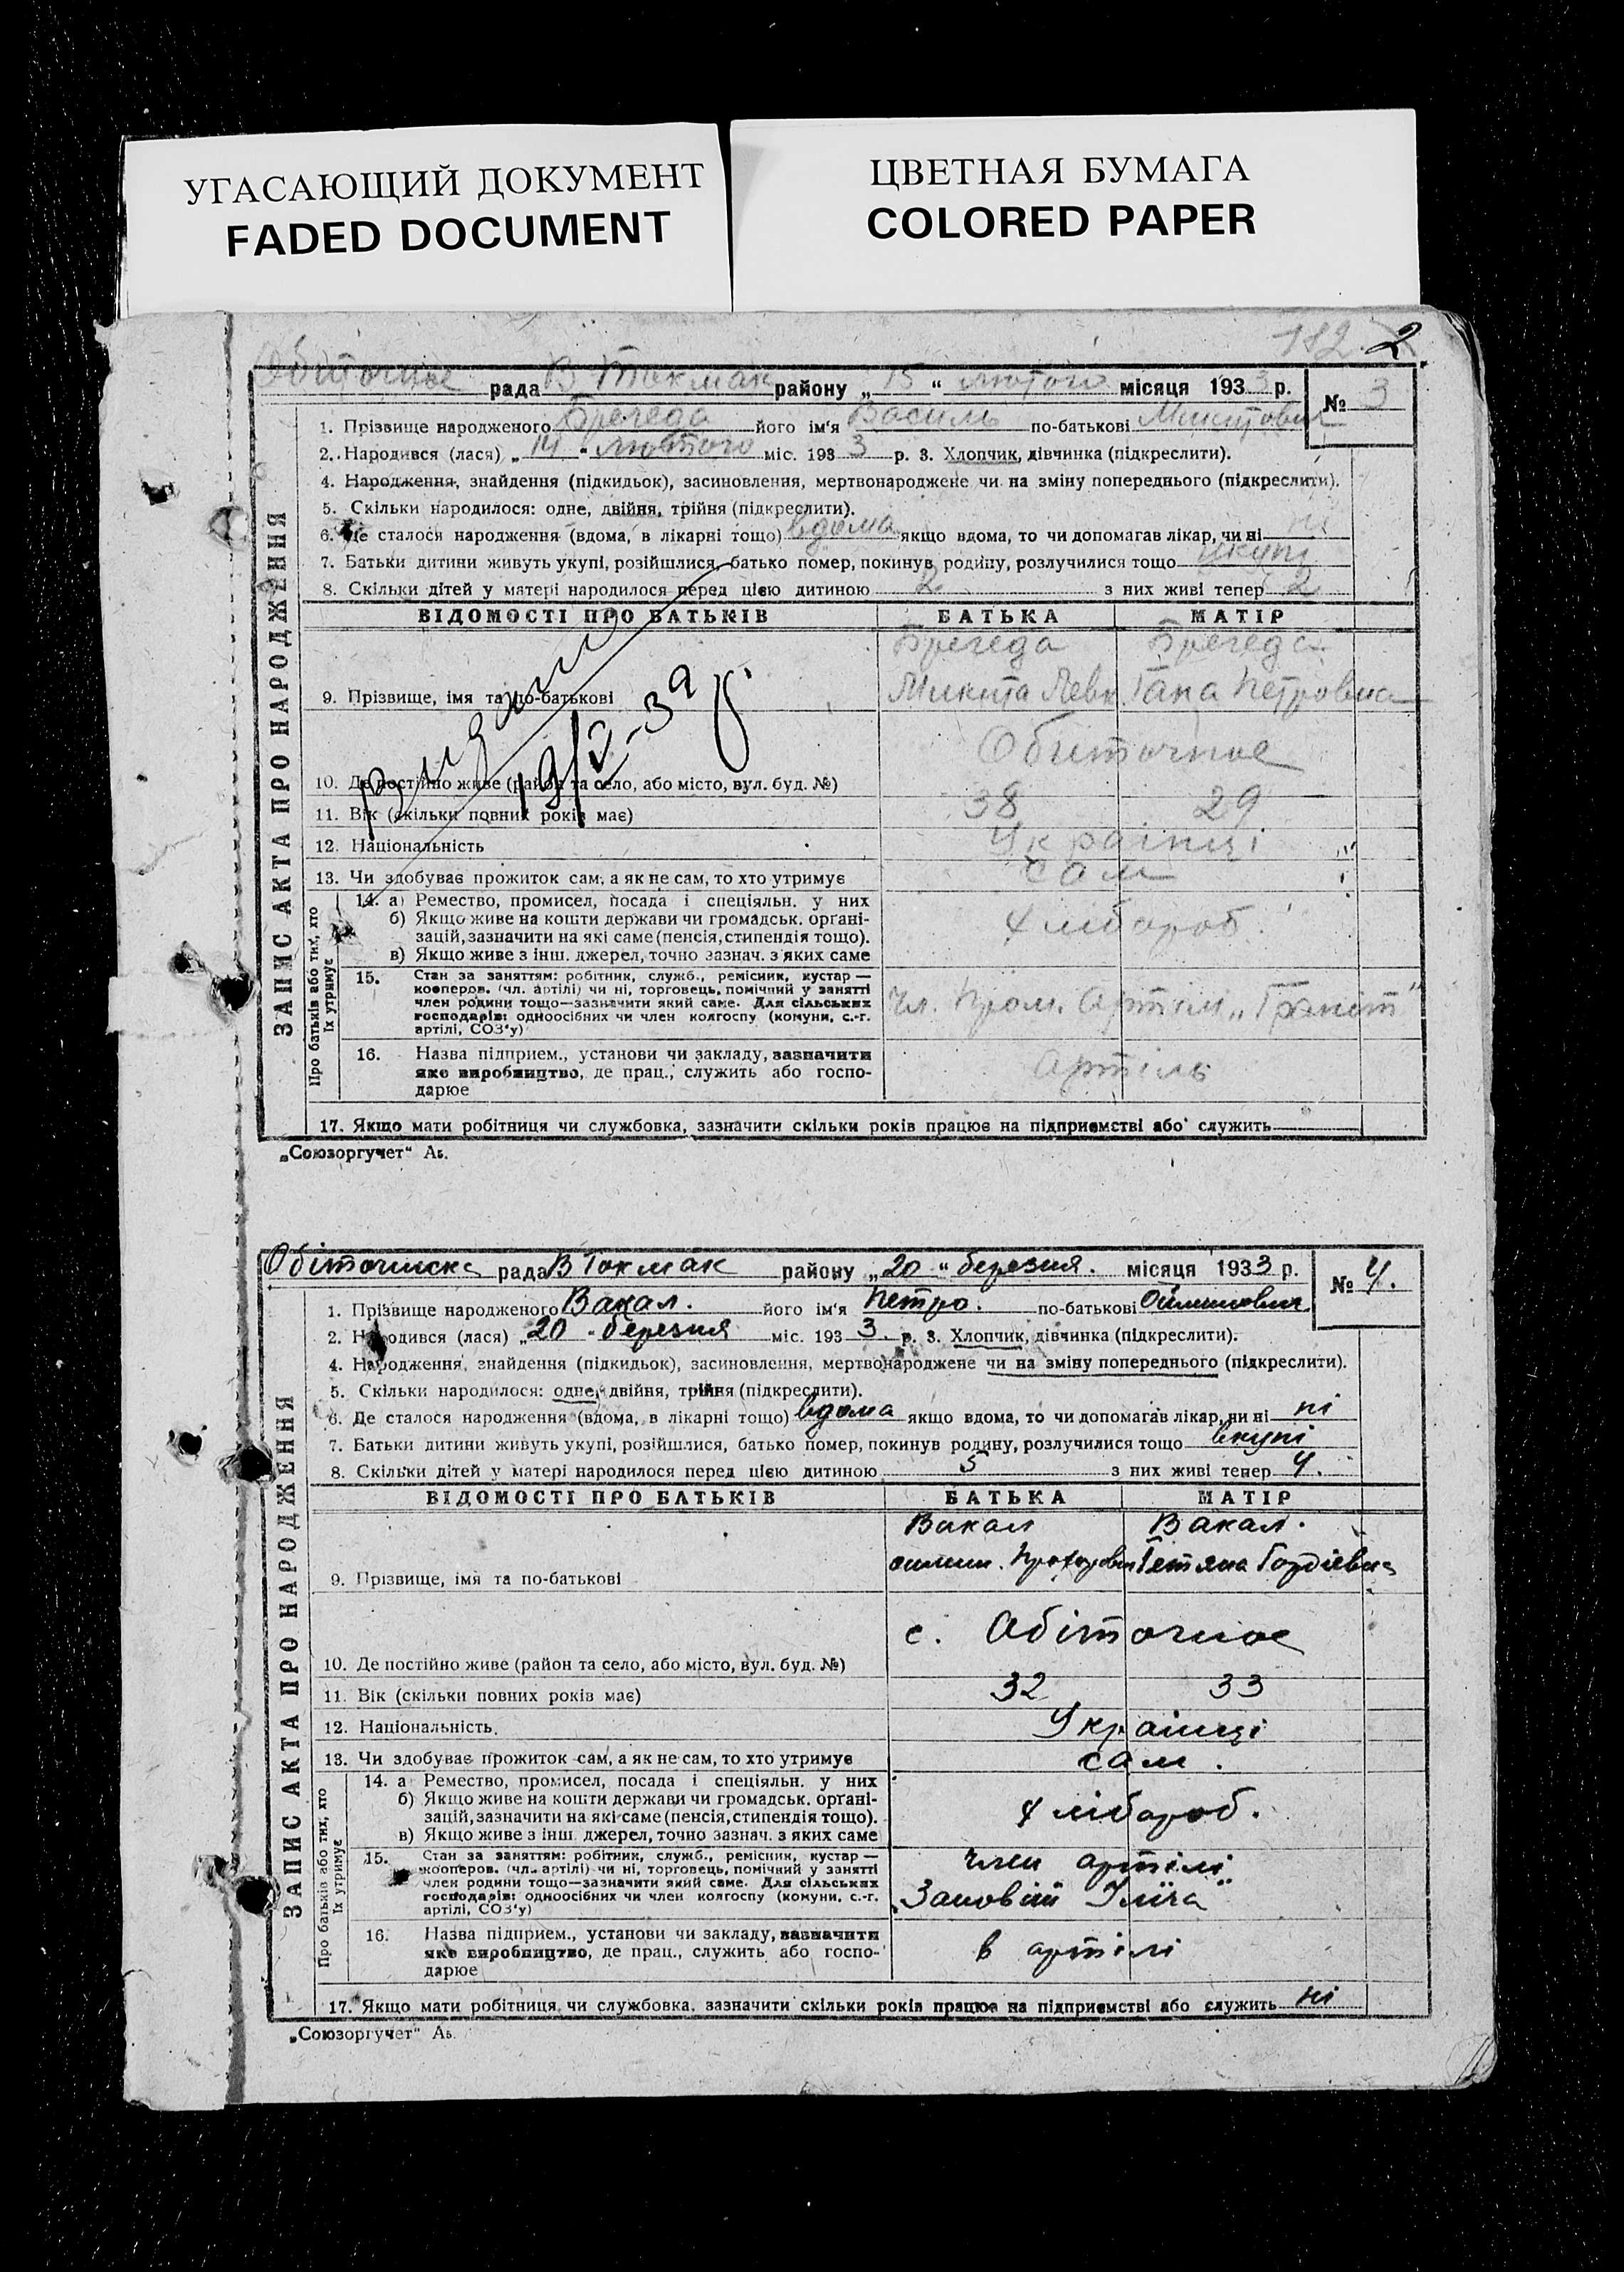 УГАСАЮЩИЙ ДОКУМЕНТ
FADED DOCUMENT
ЦВЕТНАЯ БУМАГА
COLORED PAPER
182 2
Обіточне рада В Токмак району „15“ лютого місяця 1933 р. № 3
ЗАПИС АКТА ПРО НАРОДЖЕННЯ
1. Прізвище народженого Брегеда його ім'я Василь по-батькові Микитович
2. Народився (лася) „14“ лютого міс. 1933 р. 3. Хлопчик, дівчинка (підкреслити).
4. Народження, знайдення (підкидьок), засиновлення, мертвонароджене чи на зміну попереднього (підкреслити).
5. Скільки народилося: одне, двійня, трійня (підкреслити).
6. Де сталося народження (вдома, в лікарні тощо) вдома якщо вдома, то чи допомагав лікар, чи ні ні
7. Батьки дитини живуть укупі, розійшлися, батько помер, покинув родину, розлучилися тощо вкупі
8. Скільки дітей у матері народилося перед цією дитиною 2 з них живі тепер 2
ВІДОМОСТІ ПРО БАТЬКІВ БАТЬКА МАТІР
Брегеда Брегеда
9. Прізвище, імя та по-батькові Микита Левк. Гана Петровна
Обиточное
10. Де постійно живе (район та село, або місто, вул. буд. №)
11. Вік (скільки повних років має) 38 29
12. Національність Українці
13. Чи здобуває прожиток сам, а як не сам, то хто утримує сам
Про батьків або тих, хто їх утримує
14. а) Ремество, промисел, посада і спеціяльн. у них
б) Якщо живе на кошти держави чи громадськ. орґані-
зацій, зазначити на які саме (пенсія, стипендія тощо). хлібороб
в) Якщо живе з інш. джерел, точно зазнач. з яких саме
15. Стан за заняттям: робітник, служб., ремісник, кустар —
кооперов. (чл. артілі) чи ні, торговець, помічний у занятті
член родини тощо—зазначити який саме. Для сільських
господарів: одноосібних чи член колгоспу (комуни, с.-г.
артілі, СОЗ'у) Чл. Пром. Артілі „Граніт“
16. Назва підприєм., установи чи закладу, зазначити
яке виробництво, де прац., служить або госпо-
дарює Артіль
17. Якщо мати робітниця чи службовка, зазначити скільки років працює на підприємстві або служить
„Союзоргучет“ Аь.
Обіточинска рада В Токмак району „20“ березня. місяця 1933 р. № 4.
ЗАПИС АКТА ПРО НАРОДЖЕННЯ
1. Прізвище народженого Вакал. його ім'я Петро. по-батькові
2. Народився (лася) „20“ березня міс. 1933. р. 3. Хлопчик, дівчинка (підкреслити).
4. Народження, знайдення (підкидьок), засиновлення, мертвонароджене чи на зміну попереднього (підкреслити).
5. Скільки народилося: одне, двійня, трійня (підкреслити).
6. Де сталося народження (вдома, в лікарні тощо) вдома якщо вдома, то чи допомагав лікар, чи ні ні
7. Батьки дитини живуть укупі, розійшлися, батько помер, покинув родину, розлучилися тощо вкупі
8. Скільки дітей у матері народилося перед цією дитиною 5 з них живі тепер 4.
ВІДОМОСТІ ПРО БАТЬКІВ БАТЬКА МАТІР
Вакал Вакал.
9. Прізвище, імя та по-батькові Тетяна Гордіевна
с. Обіточное
10. Де постійно живе (район та село, або місто, вул. буд. №)
11. Вік (скільки повних років має) 32 33
12. Національність Українці
13. Чи здобуває прожиток сам, а як не сам, то хто утримує сам.
Про батьків або тих, хто їх утримує
14. а Ремество, промисел, посада і спеціяльн. у них
б) Якщо живе на кошти держави чи громадськ. орґані-
зацій, зазначити на які саме (пенсія, стипендія тощо). хлібороб.
в) Якщо живе з інш. джерел, точно зазнач. з яких саме
15. Стан за заняттям: робітник, служб., ремісник, кустар —
кооперов. (чл. артілі) чи ні, торговець, помічний у занятті
член родини тощо—зазначити який саме. Для сільських
господарів: одноосібних чи член колгоспу (комуни, с.-г.
артілі, СОЗ'у) член артілі „Заповіти Ілліча“
16. Назва підприєм., установи чи закладу, зазначити
яке виробництво, де прац., служить або госпо-
дарює в артілі
17. Якщо мати робітниця чи службовка, зазначити скільки років працює на підприємстві або служить ні
„Союзоргучет“ Аь.